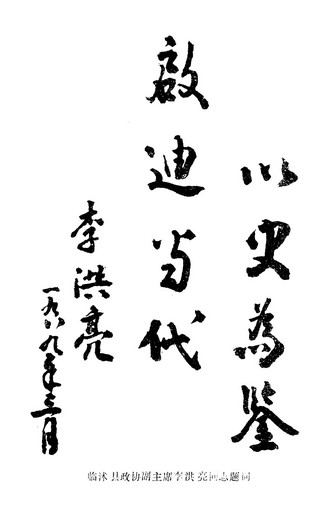 以史为鉴
启迪当代
李洪亮
一九八九年三月
临沭县政协副主席李洪亮同志题词